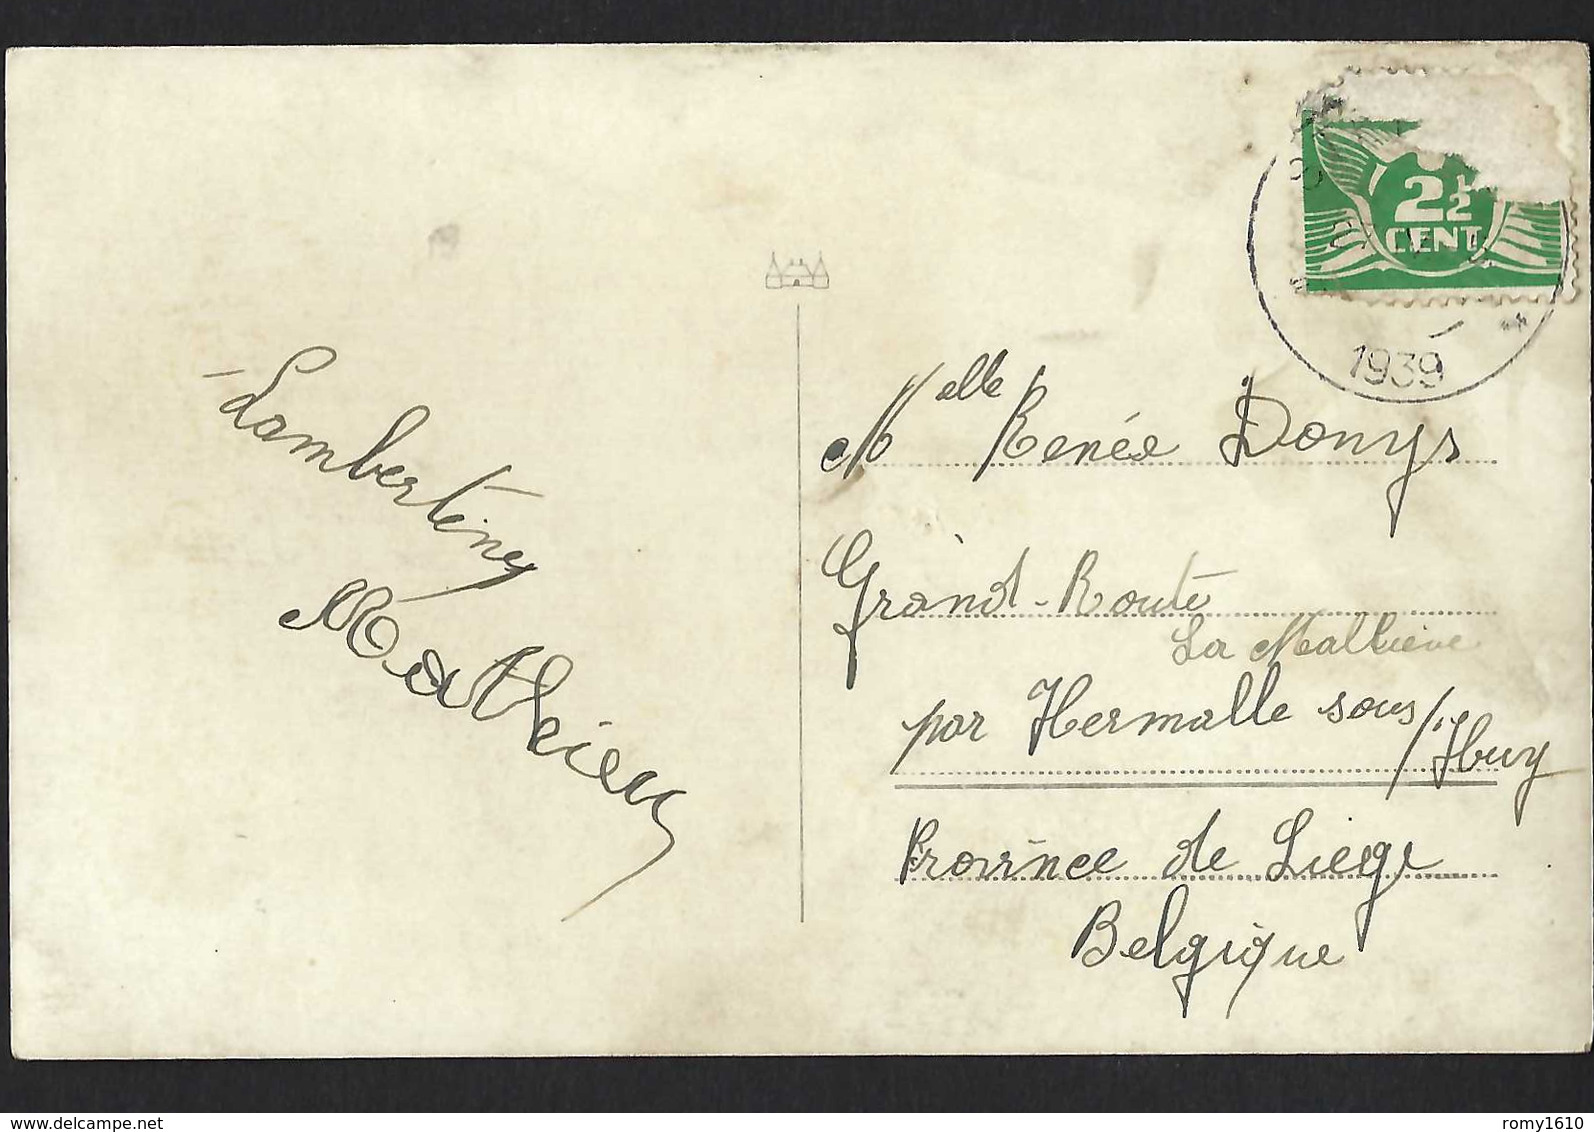 Lambertine
Mathieu
2½
CENT
1939
Melle Renée Donys
Grand-Route
La Mallieue
par Hermalle sous/Huy
Province de Liège
Belgique
www.delcampe.net
romy1610